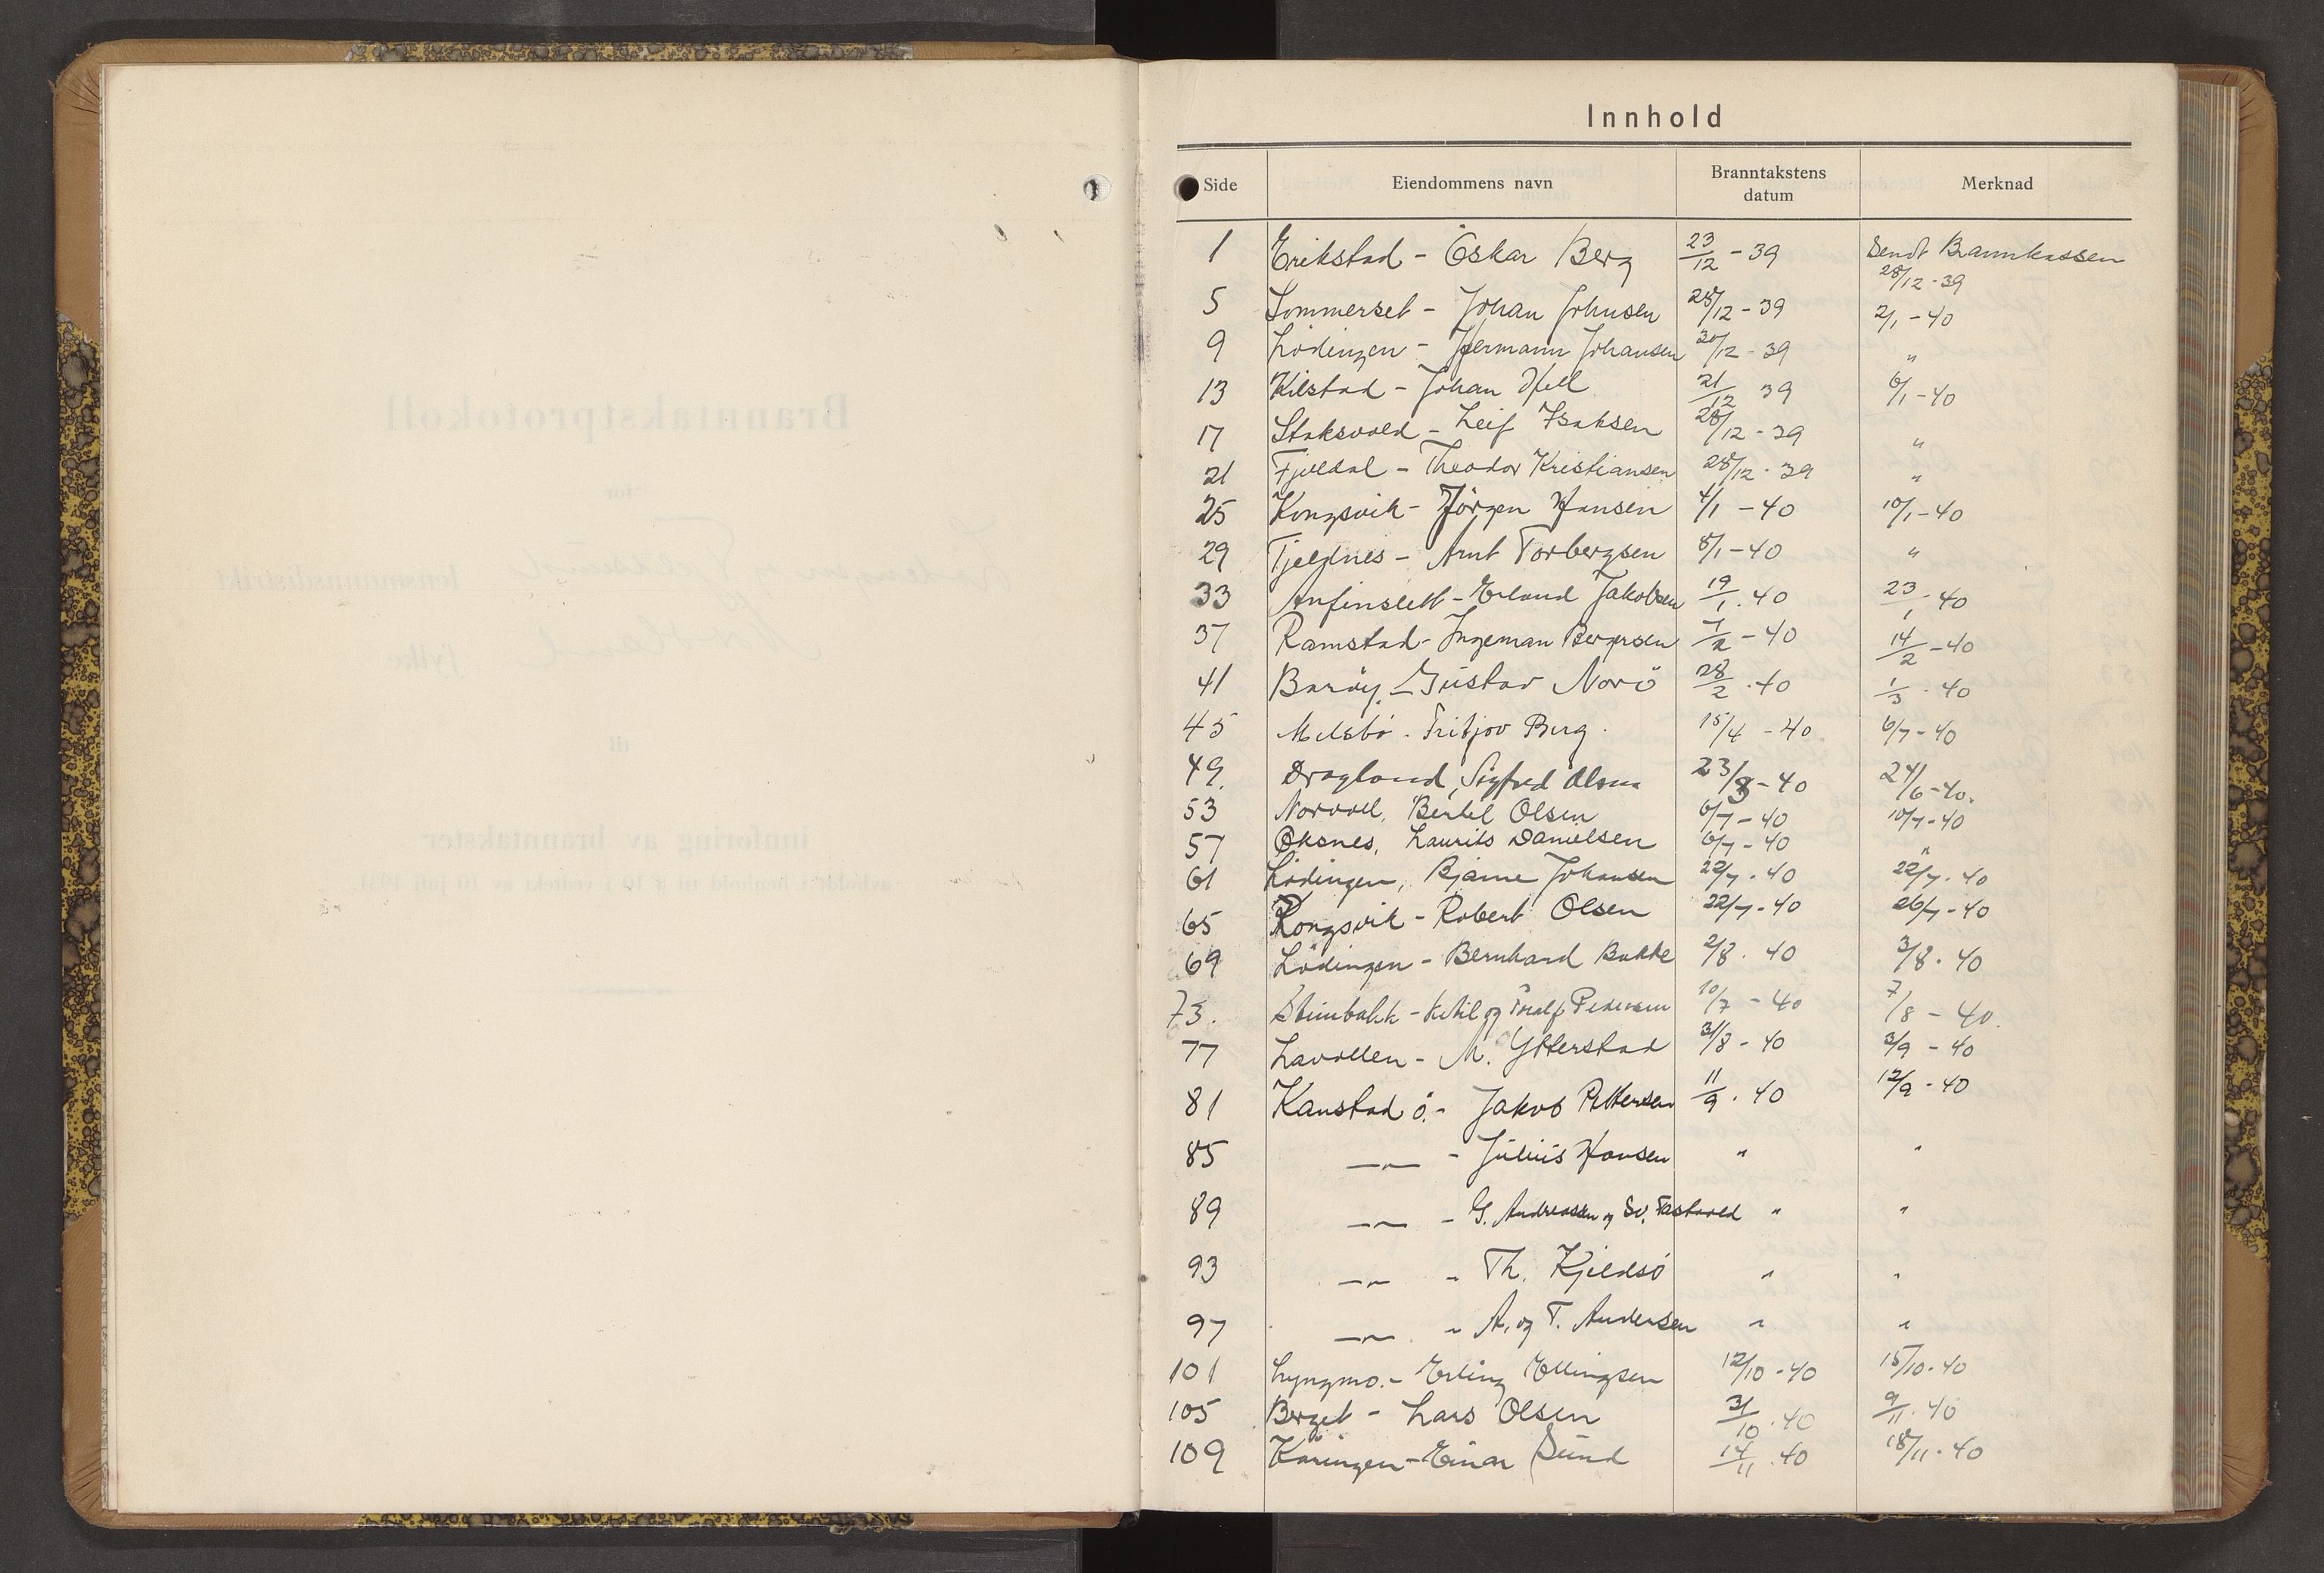 Innhold
Side Eiendommens navn Branntakstens datum Merknad
1 Erikstad - Oskar Berg 23/12 - 39 Sendt Brannkassen 28/12 - 39
5 Sommerset - Johan Johnsen 28/12 - 39 2/1 - 40
9 Lödingen - Hermann Johansen 30/12 - 39 "
13 Kilstad - Johan Hell 21/12 39 6/1 - 40
17 Stoksvold - Leif Isaksen 28/12 - 39 "
21 Fjelldal - Theodor Kristiansen 28/12 - 39 "
25 Kongsvik - Jörgen Hansen 4/1 - 40 10/1 - 40
29 Tjeldnes - Arnt Torbergsen 8/1 - 40 "
33 Anfinslett - Erland Jakobsen 19/1 . 40 23/1 . 40
37 Ramstad - Ingeman Bergersen 7/2 - 40 14/2 - 40
41 Baröy - Gustav Norö 28/2 . 40 1/3 . 40
45 Melsbö . Fritjov Berg . 15/4 - 40 6/7 - 40
49. Dragland, Sigfred Olsen 23/3 - 40 24/6 - 40.
53 Norvoll, Bertel Olsen 6/7 - 40 10/7 - 40
57 Öksnes, Laurits Danielsen 6/7 - 40 "
61 Lödingen, Bjarne Johansen 22/7 . 40 22/7 . 40
65 Kongsvik - Robert Olsen 22/7 - 40 26/7 - 40
69 Lödingen - Bernhard Bakke 2/8 . 40 3/8 . 40
73. - Ketil og Pedersen 10/7 - 40 7/8 - 40.
77 Lavollen - M. Ytterstad 31/8 - 40 3/9 - 40
81 Kanstad ö. - Jakob Pettersen 11/9 . 40 12/9 - 40
85 —"— - Julius Hansen " "
89 —"— - G. Andreassen og Sv. " "
93 —"— - Th. Kjeldsö " "
97 —"— - A. og T. Andersen " "
101 Lyngmo. - Erling Ellingsen 12/10 - 40 15/10 . 40
105 Berget - Lars Olsen 31/10 . 40 9/11 . 40
109 Käringen - Einar Sund 14/11 . 40 18/11 . 40